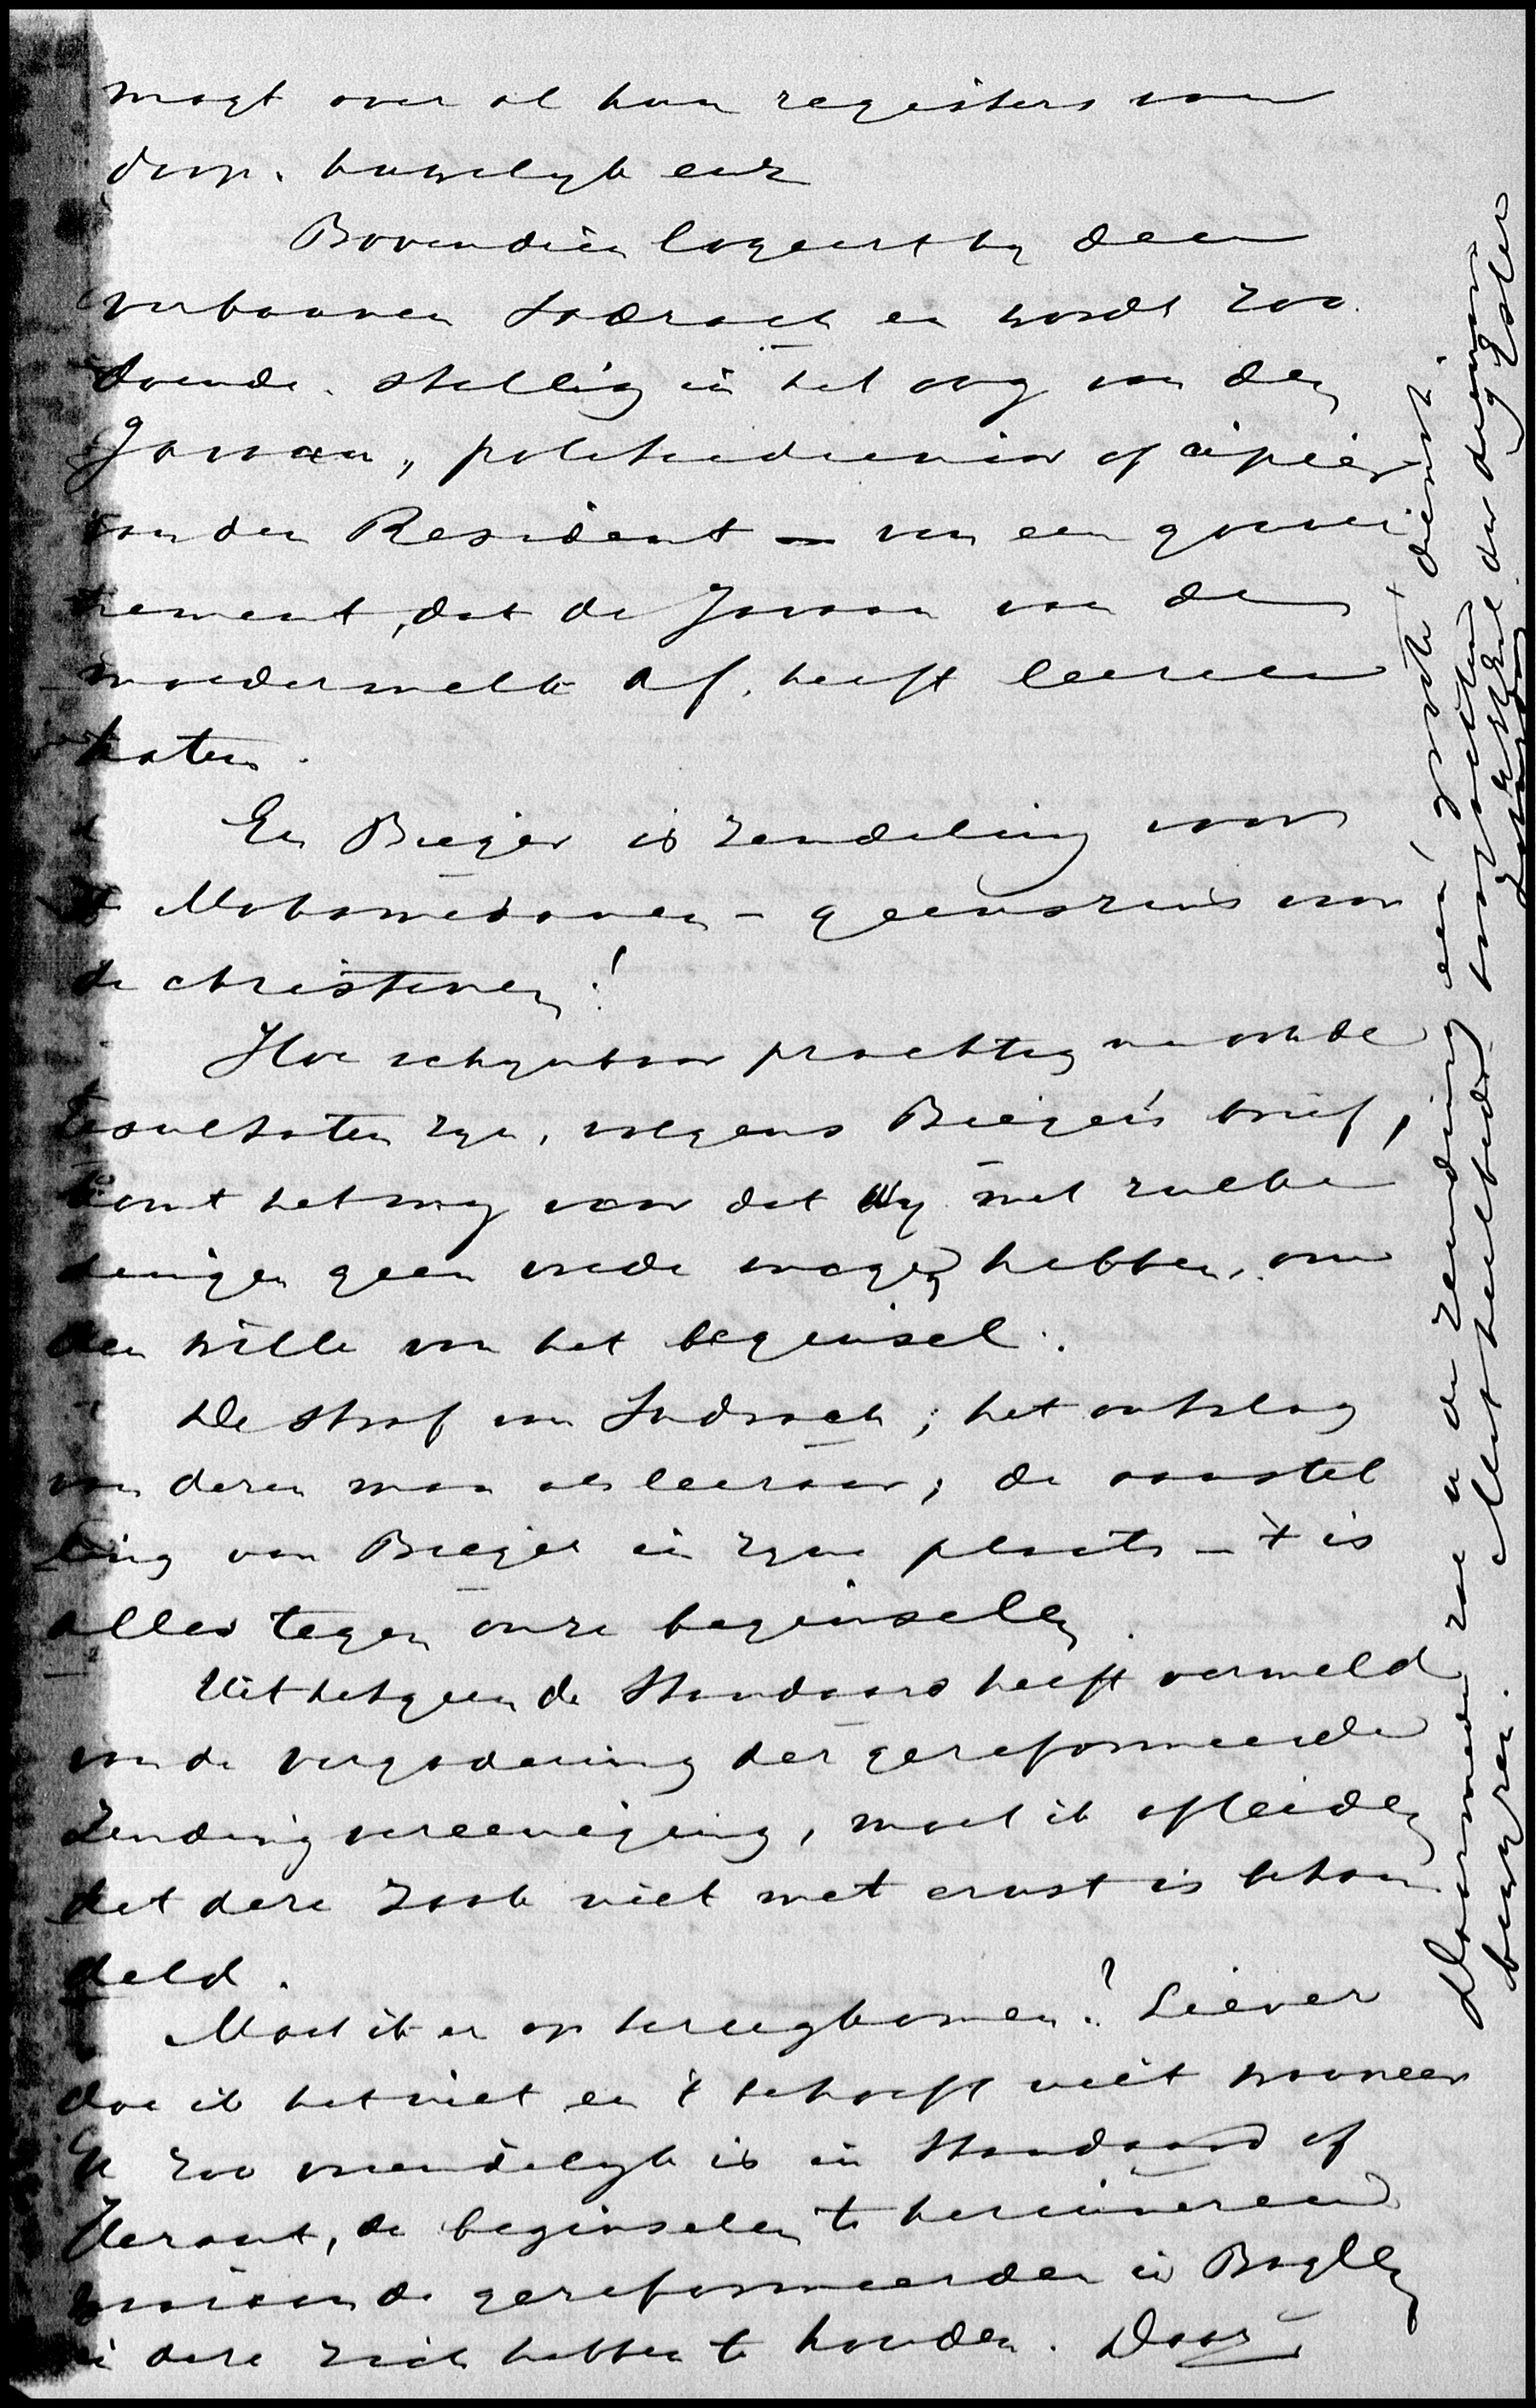 magt over al hun registers van
doop, huwelijk enz
Bovendien logeert hij den
verbannen Sadrach en wordt zoo
doende stellig in het oog van den
Javaan, politiedienaar of cipier
van den Resident — van een gouver
nement, dat de Javaan van de
moedermelk af, heeft leeren
haten.
En Bieger is zendeling voor
de Mohamedanen – geenszins voor
de christenen!
Hoe schijnbaar prachtig nu ook de
resultaten zijn, volgens Bieger's brief,
komt het mij voor dat wij met zulke
dingen geen vrede mogen hebben, om
den wille van het beginsel.
De straf van Sadrach; het ontslag
van dezen man als leeraar; de aanstel
ling van Bieger in zijne plaats – 't is
alles tegen onze beginselen.
Uit hetgeen de Standaard heeft vermeld
van de vergadering der gereformeerde
Zendingvereeniging, moet ik afleiden
dat deze zaak niet met ernst is behan
deld.
Moet ik er op terugkomen? Liever
doe ik het niet en 't behoeft niet wanneer
Gij zoo vriendelijk is in Standaard of
Heraut, de beginselen te herinneren
waaraan de gereformeerden in Bagelen
in deze zich hebben te houden. Daar
mede zal u de zending een groote dienst
bewijzen.
Met heilbede